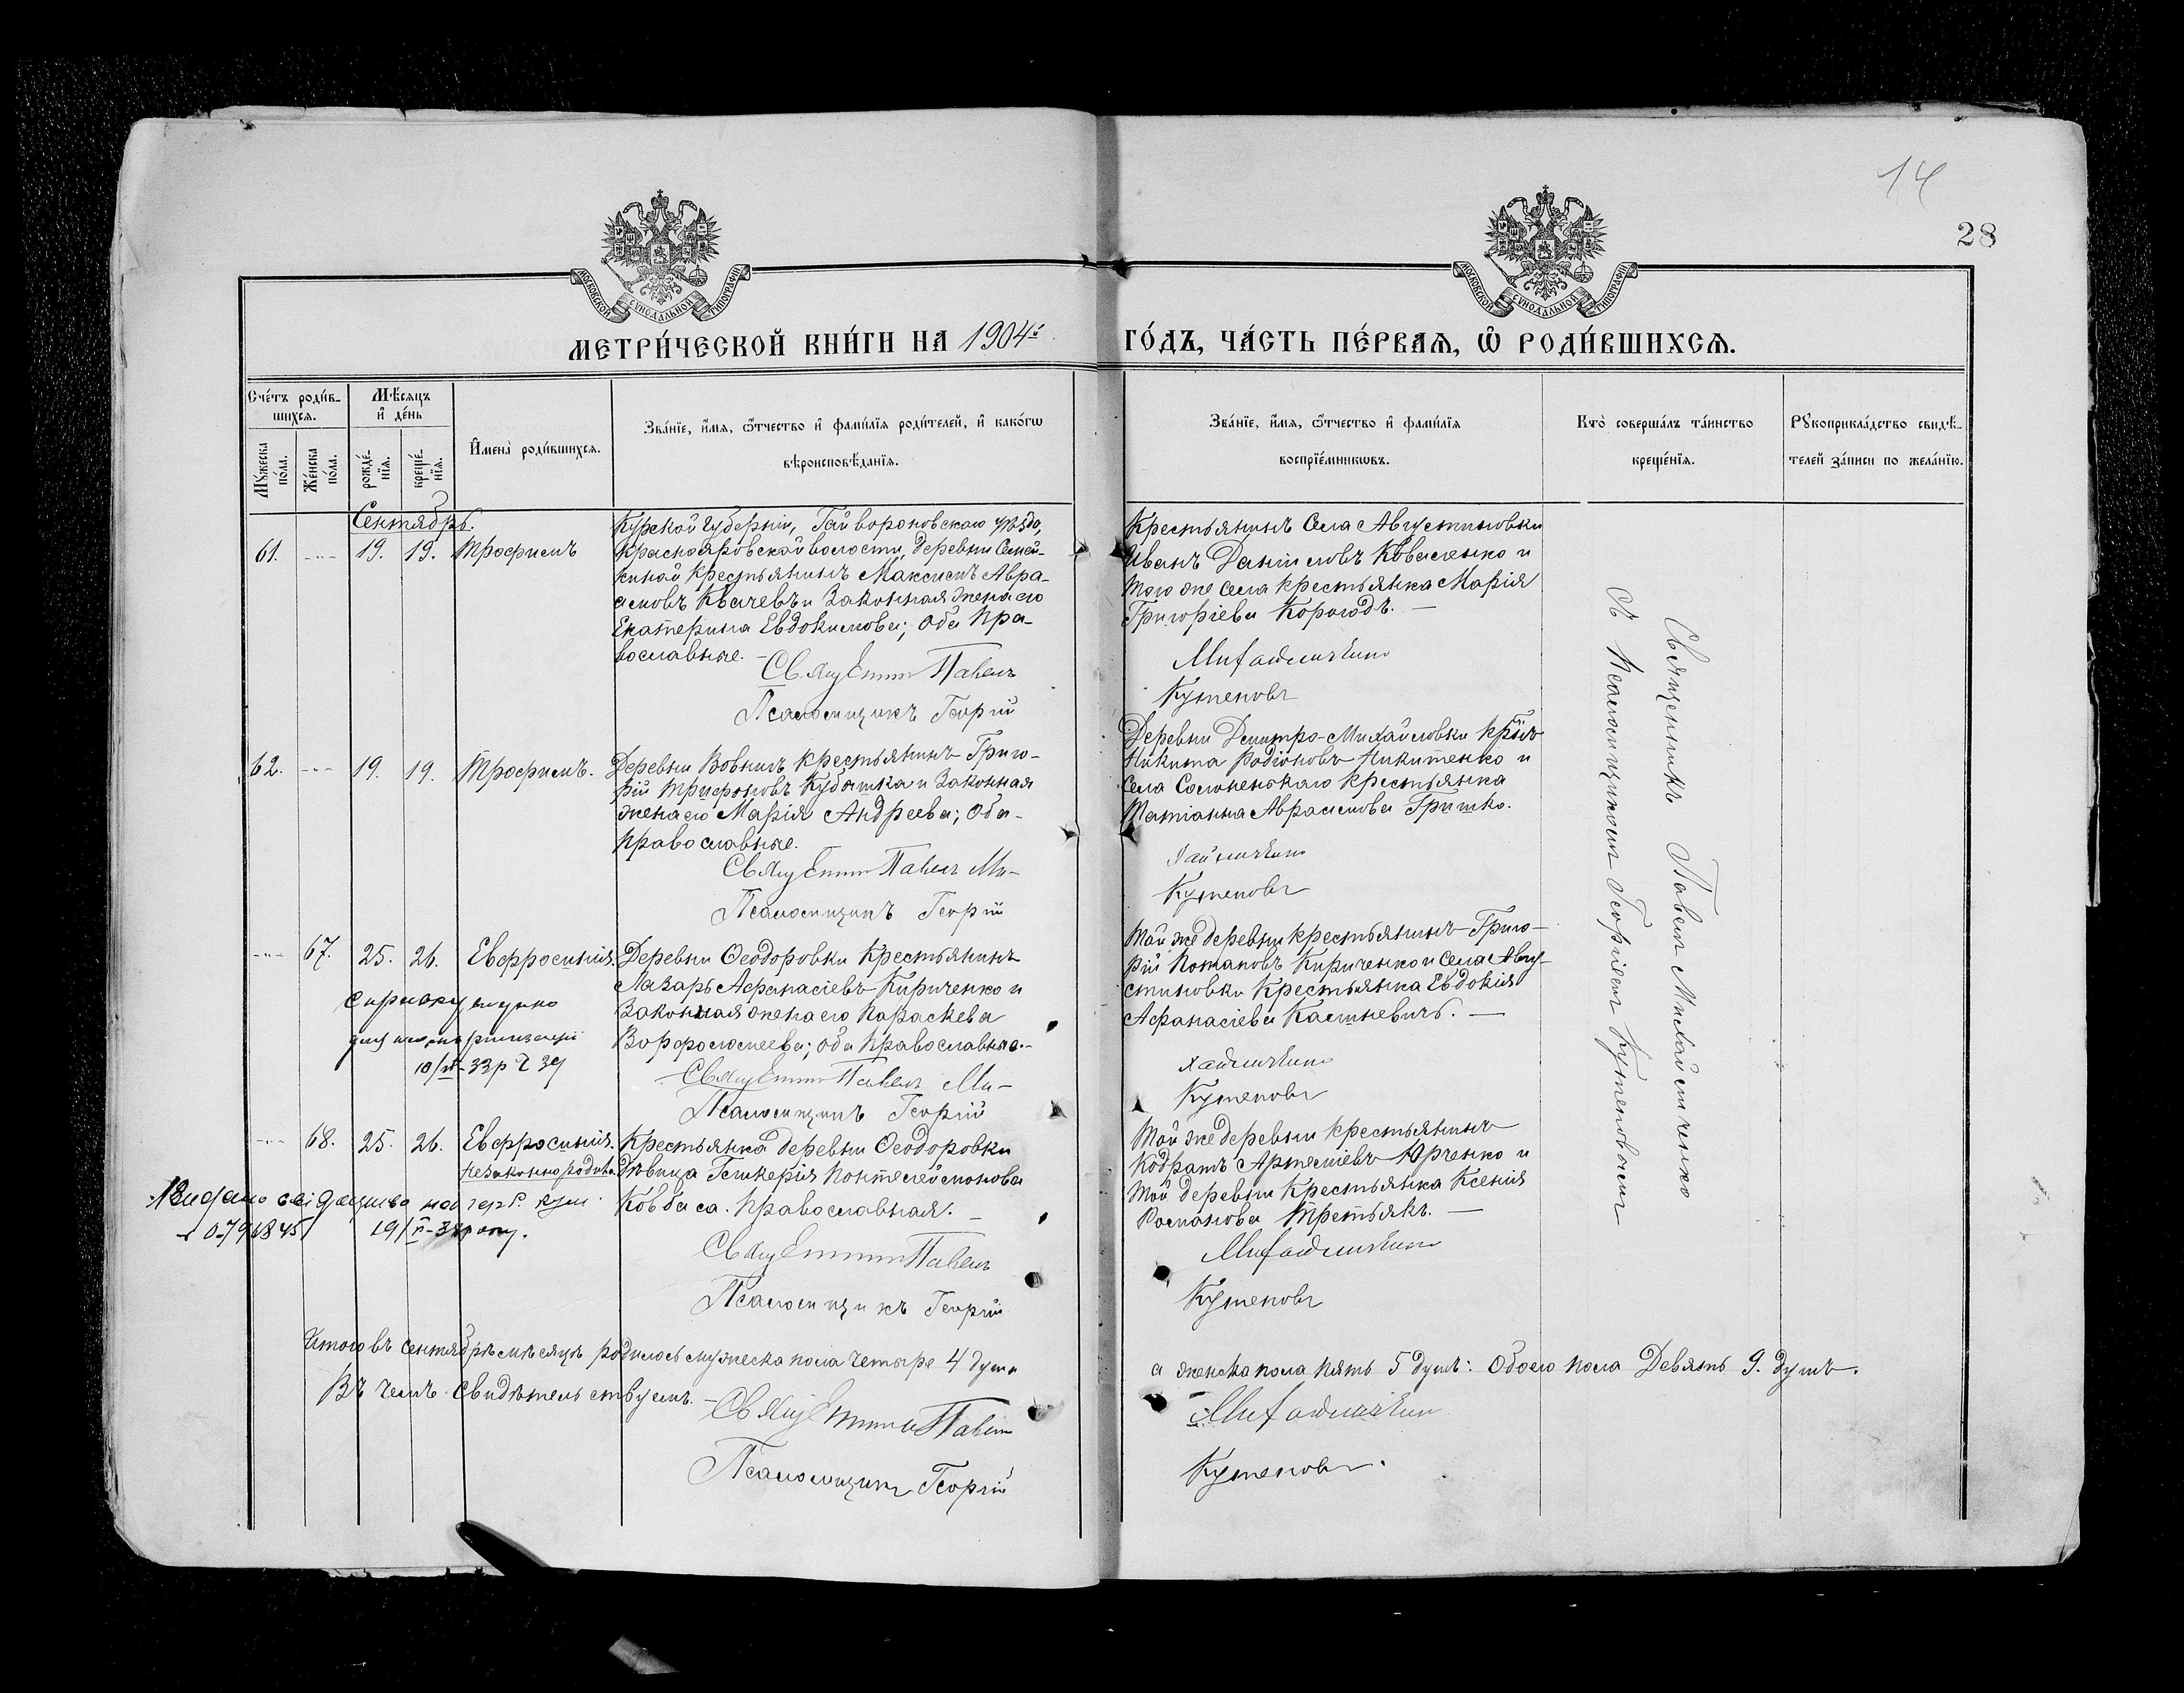 14
28
МОСКОВСКОЙ СѴНОДАЛЬНОЙ ТИПОГРАФІИ
МОСКОВСКОЙ СѴНОДАЛЬНОЙ ТИПОГРАФІИ
МЕТРИ́ЧЕСКОЙ КНИ́ГИ НА 1904й ГО́ДЪ, ЧА́СТЬ ПЕ́РВАѦ, Ѡ҆ РОДИ́ВШИХСѦ.
Счéтъ роди́в-
шихсѧ.
Мꙋ́жеска
по́ла.
Же́нска
по́ла.
Мѣ́сѧцъ
и҆ де́нь
рожде́-
нїѧ.
креще́-
нїѧ.
И҆мена̀ роди́вшихсѧ.
Зва́нїе, и҆́мѧ, ѻ҆́тчество и҆ фами́лїѧ роди́телей, и҆ како́гѡ
вѣроисповѣ́данїѧ.
Зва́нїе, и҆́мѧ, ѻ҆́тчество и҆ фами́лїѧ
воспрїе́мникѡвъ.
Кто̀ соверша́лъ та́инство
креще́нїѧ.
Рꙋкоприкла́дство свидѣ́-
телей за́писи по жела́нїю.
Сентябрь.
61. -"- 19. 19. Трофимъ
Курской губерніи, Гайвороновскаго уѣзда,
Краснояровской волости, деревни Семей-
киной крестьянинъ Максимъ Авра-
амовъ Квачевъ и законная жена его
Екатерина Евдокимова; оба пра-
вославные. —
Священникъ Павелъ
Псаломщикъ Георгій
Крестьянинъ села Августиновки
Иванъ Даніиловъ Коваленко и
того же села крестьянка Марія
Григоріева Корогодъ. —
Михайличенко
Кутеповъ
62. -"- 19. 19. Трофимъ.
Деревни Вовнигъ крестьянинъ Григо-
рій Трифоновъ Кубатка и законная
жена его Марія Андреева; оба
православные.
Священникъ Павелъ Ми-
Псаломщикъ Георгій
Деревни Дмитро-Михайловки кр-нъ
Никита Родіоновъ Никитенко и
села Солоненькаго крестьянка
Татіанна Авраамова Гришко.
хайличенко
Кутеповъ
-"- 67. 25. 26. Евфросинія.
Деревни Ѳеодоровки крестьянинъ
Лазарь Афанасіевъ Кириченко и
законная жена его Параскева
Ворфоломеева; оба православные. —
Священникъ Павелъ Ми-
Псаломщикъ Георгій
Той же деревни крестьянинъ Григо-
рій Потаповъ Кириченко и села Авгу-
стиновки крестьянка Евдокія
Афанасіева Касиневичъ. —
хайличенко
Кутеповъ
Справку видано
для
10/ 33р
-"- 68. 25. 26. Евфросинія.
незаконнорожд.
Крестьянка деревни Ѳеодоровки
дѣвица Гликерія Понтелеймонова
Ковбаса. православная. —
Священникъ Павелъ
Псаломщикъ Георгій
Той же деревни крестьянинъ
Кодратъ Артеміевъ Юрченко и
той деревни крестьянка Ксенія
Романова Третьякъ. —
Михайличенко
Кутеповъ
Видано свідоцтво на
19/ року.
Священникъ Павелъ Михайличенко
съ псаломщикомъ Георгіемъ Кутеповымъ
Итого въ сентябрѣ мѣсяцѣ родилось мужеска пола четыре 4 души а женска пола пять 5 душъ: обоего пола девять 9. душъ.
Въ чемъ свидѣтельствуемъ. —
Священникъ Павелъ Михайличенко
Псаломщикъ Георгій Кутеповъ.